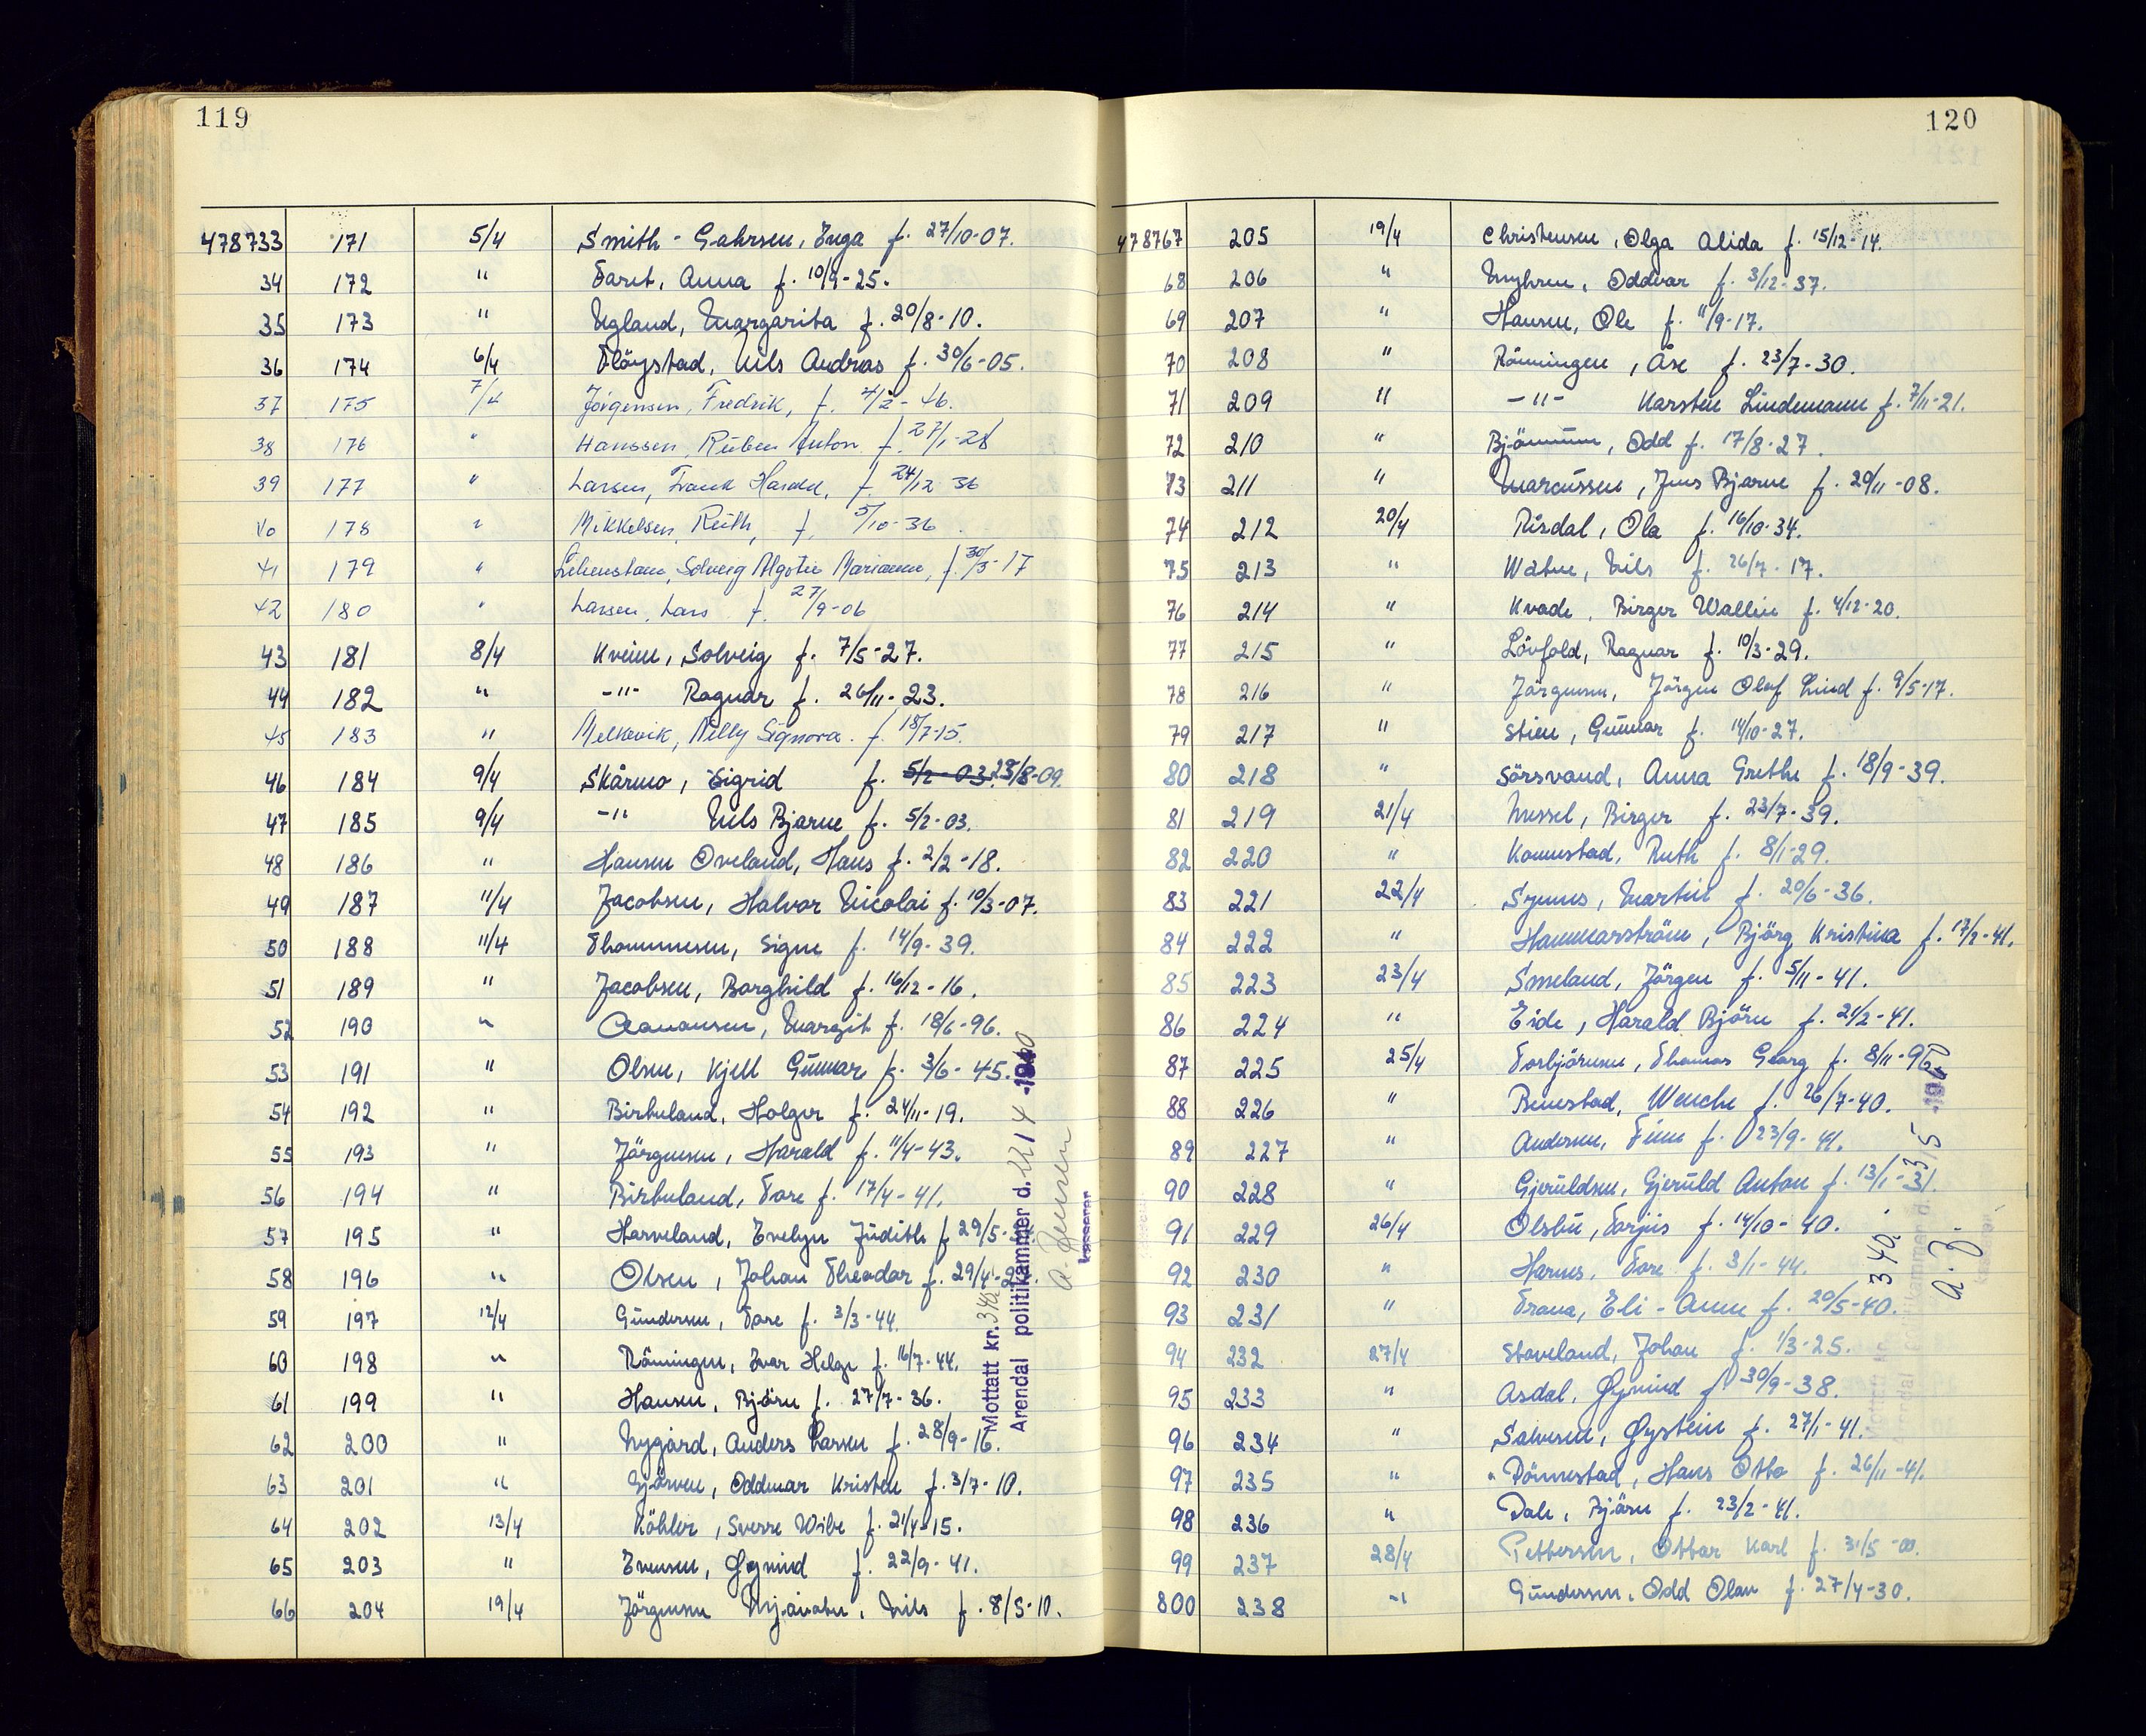 119
478733 171 5/4 Smith-Gahrsen, Inga f. 27/10-07.
34 172 " Taret, Anna f. 10/9-25.
35 173 " Ugland, Margarita f. 20/8-10.
36 174 6/4 Fløystad, Nils Andreas f. 30/6-05.
37 175 7/4 Jörgensen, Fredrik, f. 4/2-46.
38 176 " Hanssen, Ruben Anton f. 27/1-28
39 177 " Larsen, Frank Harald, f. 24/12 36
40 178 " Mikkelsen, Ruth, f. 5/10-36.
41 179 " Solveig Algotie Marianne, f. 30/3-17
42 180 " Larsen, Lars f. 27/9-06
43 181 8/4 Kveim, Solveig f. 7/5-27.
44 182 " -"- Ragnar f. 26/11-23.
45 183 " Melkevik, Nelly Signora. f. 18/7-15.
46 184 9/4 Skårmo, Sigrid f. 5/2-03. 28/8-09.
47 185 9/4 -"- Nils Bjarne f. 5/2-03.
48 186 " Hansen Oveland, Hans f. 2/2-18.
49 187 11/4 Jacobsen, Halvor Nicolai f. 10/3-07.
50 188 11/4 Thommesen, Signe f. 14/9-39.
51 189 " Jacobsen, Borghild f. 16/12-16.
52 190 " Aanonsen, Margit f. 18/6-96.
53 191 " Olsen, Kjell Gunnar f. 3/6-45.
54 192 " Birkeland, Holger f. 24/11-19.
55 193 " Jörgensen, Harald f. 11/4-43.
56 194 " Birkeland, Tore f. 17/4-41.
57 195 " Harveland, Evelyn Judith f 29/5-
58 196 " Olsen, Johan Theodor f. 29/4-2
59 197 12/4 Gundersen, Tore f. 3/3-44.
60 198 " Röningen, Ivar Helge f. 16/7-44.
61 199 " Hansen, Björn f. 27/7-36.
62 200 " Nygård, Anders Larsen f. 28/9-16.
63 201 " Gjörven, Oddmar Kristen f. 3/7-10.
64 202 13/4 Köhler, Sverre Wibe f. 21/4-15.
65 203 " Evensen, Øyvind f. 22/9-41.
66 204 19/4 Jörgensen Mjåvatn, Nils f. 8/5-10.
Mottatt kr. 340,
Arendal politikammer d. 22/4 -1960
kasserer
120
478767 205 19/4 Christensen, Olga Alida f. 15/12-14.
68 206 " Myhren, Oddvar f. 3/12-37.
69 207 " Hansen, Ole f. 11/9-17.
70 208 " Rönningen, Åse f. 23/7-30.
71 209 " -"- Karsten Lindemann f. 7/11-21.
72 210 " Odd f. 17/8-27.
73 211 " Marcussen, Jens Bjarne f. 20/11-08.
74 212 20/4 Risdal, Ola f. 16/10-34.
75 213 " Watne, Nils f. 26/7-17.
76 214 " Kvade, Birger Wallin f. 4/12-20.
77 215 " Lövfold, Ragnar f. 10/3-29.
78 216 " Jörgensen, Jörgen Olaf Lind f. 9/5-17.
79 217 " Stien, Gunnar f. 14/10-27.
80 218 " Sörsvand, Anna Grethe f. 18/9-39.
81 219 21/4 Messel, Birger f. 23/7-39.
82 220 " Konnestad, Ruth f. 8/1-29.
83 221 22/4 Synnes, Martin f. 20/6-36.
84 222 " Hammarström, Björg Kristina f. 17/2-41.
85 223 23/4 Smeland, Jörgen f. 5/11-41.
86 224 " Eide, Harald Björn f. 21/2-41.
87 225 25/4 Torbjörnsen, Thomas Georg f. 8/11-96
88 226 " Benestad, Wenche f. 26/7-40.
89 227 " Andersen, Finn f. 23/9-41.
90 228 " Gjeruldsen, Gjeruld Anton f. 13/1-31.
91 229 26/4 Olsbu, Tarjus f. 14/10-40.
92 230 " Harnes, Tore f. 3/1-44.
93 231 " Trana, Eli-Ann f. 20/5-40.
94 232 27/4 Staveland, Johan f. 1/3-25.
95 233 " Asdal, Øyvind f. 30/9-38.
96 234 " Salvesen, Øystein f. 27/1-41.
97 235 " Rönnestad, Hans Otto f. 26/11-41.
98 236 " Dale, Björn f. 23/2-41.
99 237 28/4 Pettersen, Ottar Karl f. 31/5-00.
800 238 -"- Gundersen, Odd Olav f. 27/4-30.
340,
3/5 -1960